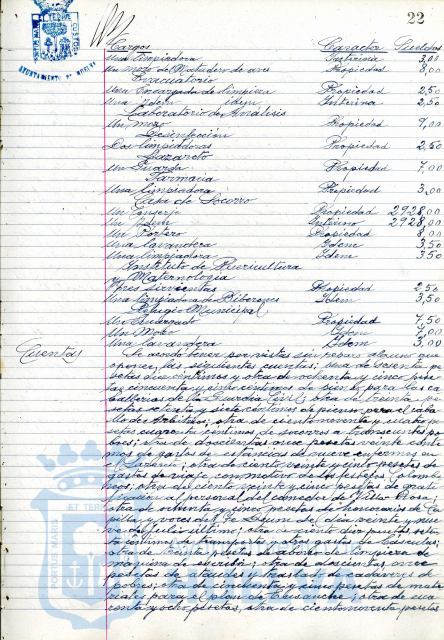 22
Cargos Caracter Sueldos
Una limpiadora Interina 3,00
Un mozo de Matadero de aves Propiedad 8,00
Evacuatorio
Una Encargada de limpieza Propiedad 2,50
Una Idem idem Interina 2,50
Laboratorio de Análisis
Un mozo Propiedad 9,00
Desinfección
Dos limpiadoras Propiedad 2,50
Lazareto
Un Guarda Propiedad 7,00
Farmacia
Una limpiadora Propiedad 3,00
Casa de Socorro
Un Conserje Propiedad 2928,00
Un Idem Interino 2928,00
Un Portero Propiedad 8,00
Una lavandera Idem 3,50
Una limpiadora Idem 3,50
Instituto de Puericultura
Maternologia
Tres sirvientas Propiedad 2,50
Una limpiadora de Biberones Idem 3,50
Refugio Municipal
Un Encargado Propiedad 7,50
Un Mozo Idem 7,00
Una lavandera Idem 3,00
Cuentas Se acordó tener por vistas sin reparo alguno que
oponer, las siguientes cuentas: una de sesenta pe
setas diez céntimos y otra de ochenta y cinco pese
tas cincuenta y cinco céntimos de pienso para las ca
ballerias de la Guardia Civil; otra de treinta pe
setas setenta y siete céntimos de pienso para el caba
llo de Arbitrios; otra de ciento noventa y cuatro pe
setas cuarenta céntimos de socorros a transeuntes po
bres; otra de doscientas once pesetas veinte cénti
mos de gastos de estancias de nueve enfermos en
el Lazareto; otra de ciento veinte y cinco pesetas de
gastos de viaje con motivo de los festejos Colombi
nos; otra de ciento veinte y cinco pesetas de grati
ficación al personal del comedor de Villa Rosa;
otra de ochenta y cinco pesetas de honorarios de Ca
pilla y voces del Te Deum del dia veinte y nue
ve de Julio último; otra de ciento diez pesetas sesen
ta céntimos de transporte y otros gastos de Cascular;
otra de treinta pesetas de abono de limpieza de
máquina de escribir; otra de doscientas once
pesetas de ataudes y traslado de cadaveres de
pobres; otra de cincuenta y cinco pesetas de mate
riales para el plano de Ensanche; otra de cua
renta y ocho pesetas; otra de ciento noventa pesetas